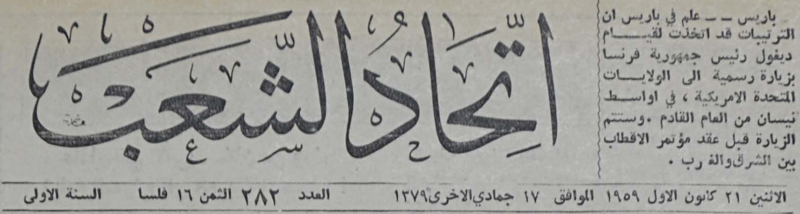 باريس ــ علم في باريس ان
الترتيبات قد اتخذت لقيام
ديغول رئيس جمهورية فرنسا
بزيارة رسمية الى الولايات
المتحدة الامريكية ، في اواسط
نيسان من العام القادم . وستتم
الزيارة قبل عقد مؤتمر الاقطاب
بين الشرق والغرب .
اتّحاد الشّعب
الاثنين ٢١ كانون الاول ١٩٥٩ الموافق ١٧ جمادي الاخرى ١٣٧٩ العدد ٢٨٢ الثمن ١٦ فلسا السنة الاولى